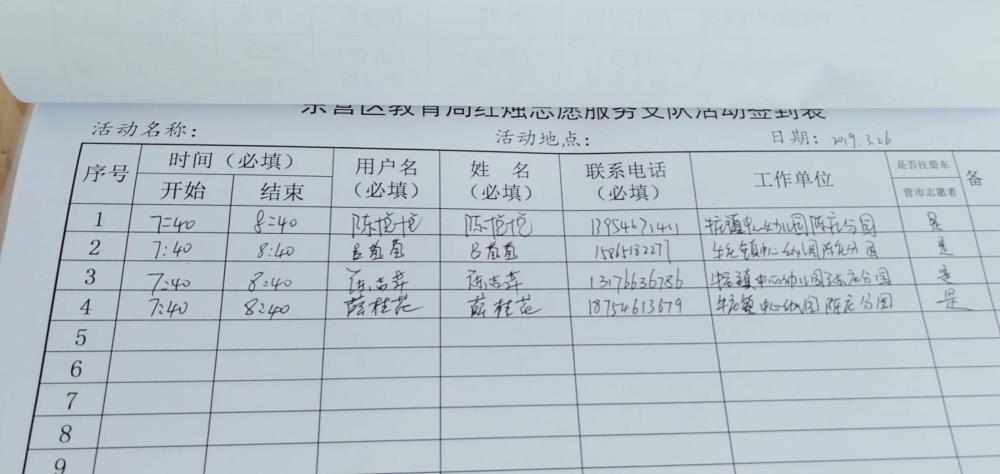 东营区教育局红烛志愿服务支队活动签到表
活动名称： 活动地点： 日期：2019.3.26
序号 时间（必填） 用户名（必填） 姓名（必填） 联系电话（必填） 工作单位 是否注册东营市志愿者 备
开始 结束
1 7:40 8:40 陈悦悦 陈悦悦 13954671411 牛庄镇中心幼儿园陈庄分园 是
2 7:40 8:40 吕苗苗 吕苗苗 15865182277 牛庄镇中心幼儿园陈庄分园 是
3 7:40 8:40 陈吉萍 陈吉萍 13176636786 牛庄镇中心幼儿园陈庄分园 是
4 7:40 8:40 薛桂花 薛桂花 18754613679 牛庄镇中心幼儿园陈庄分园 是
5
6
7
8
9